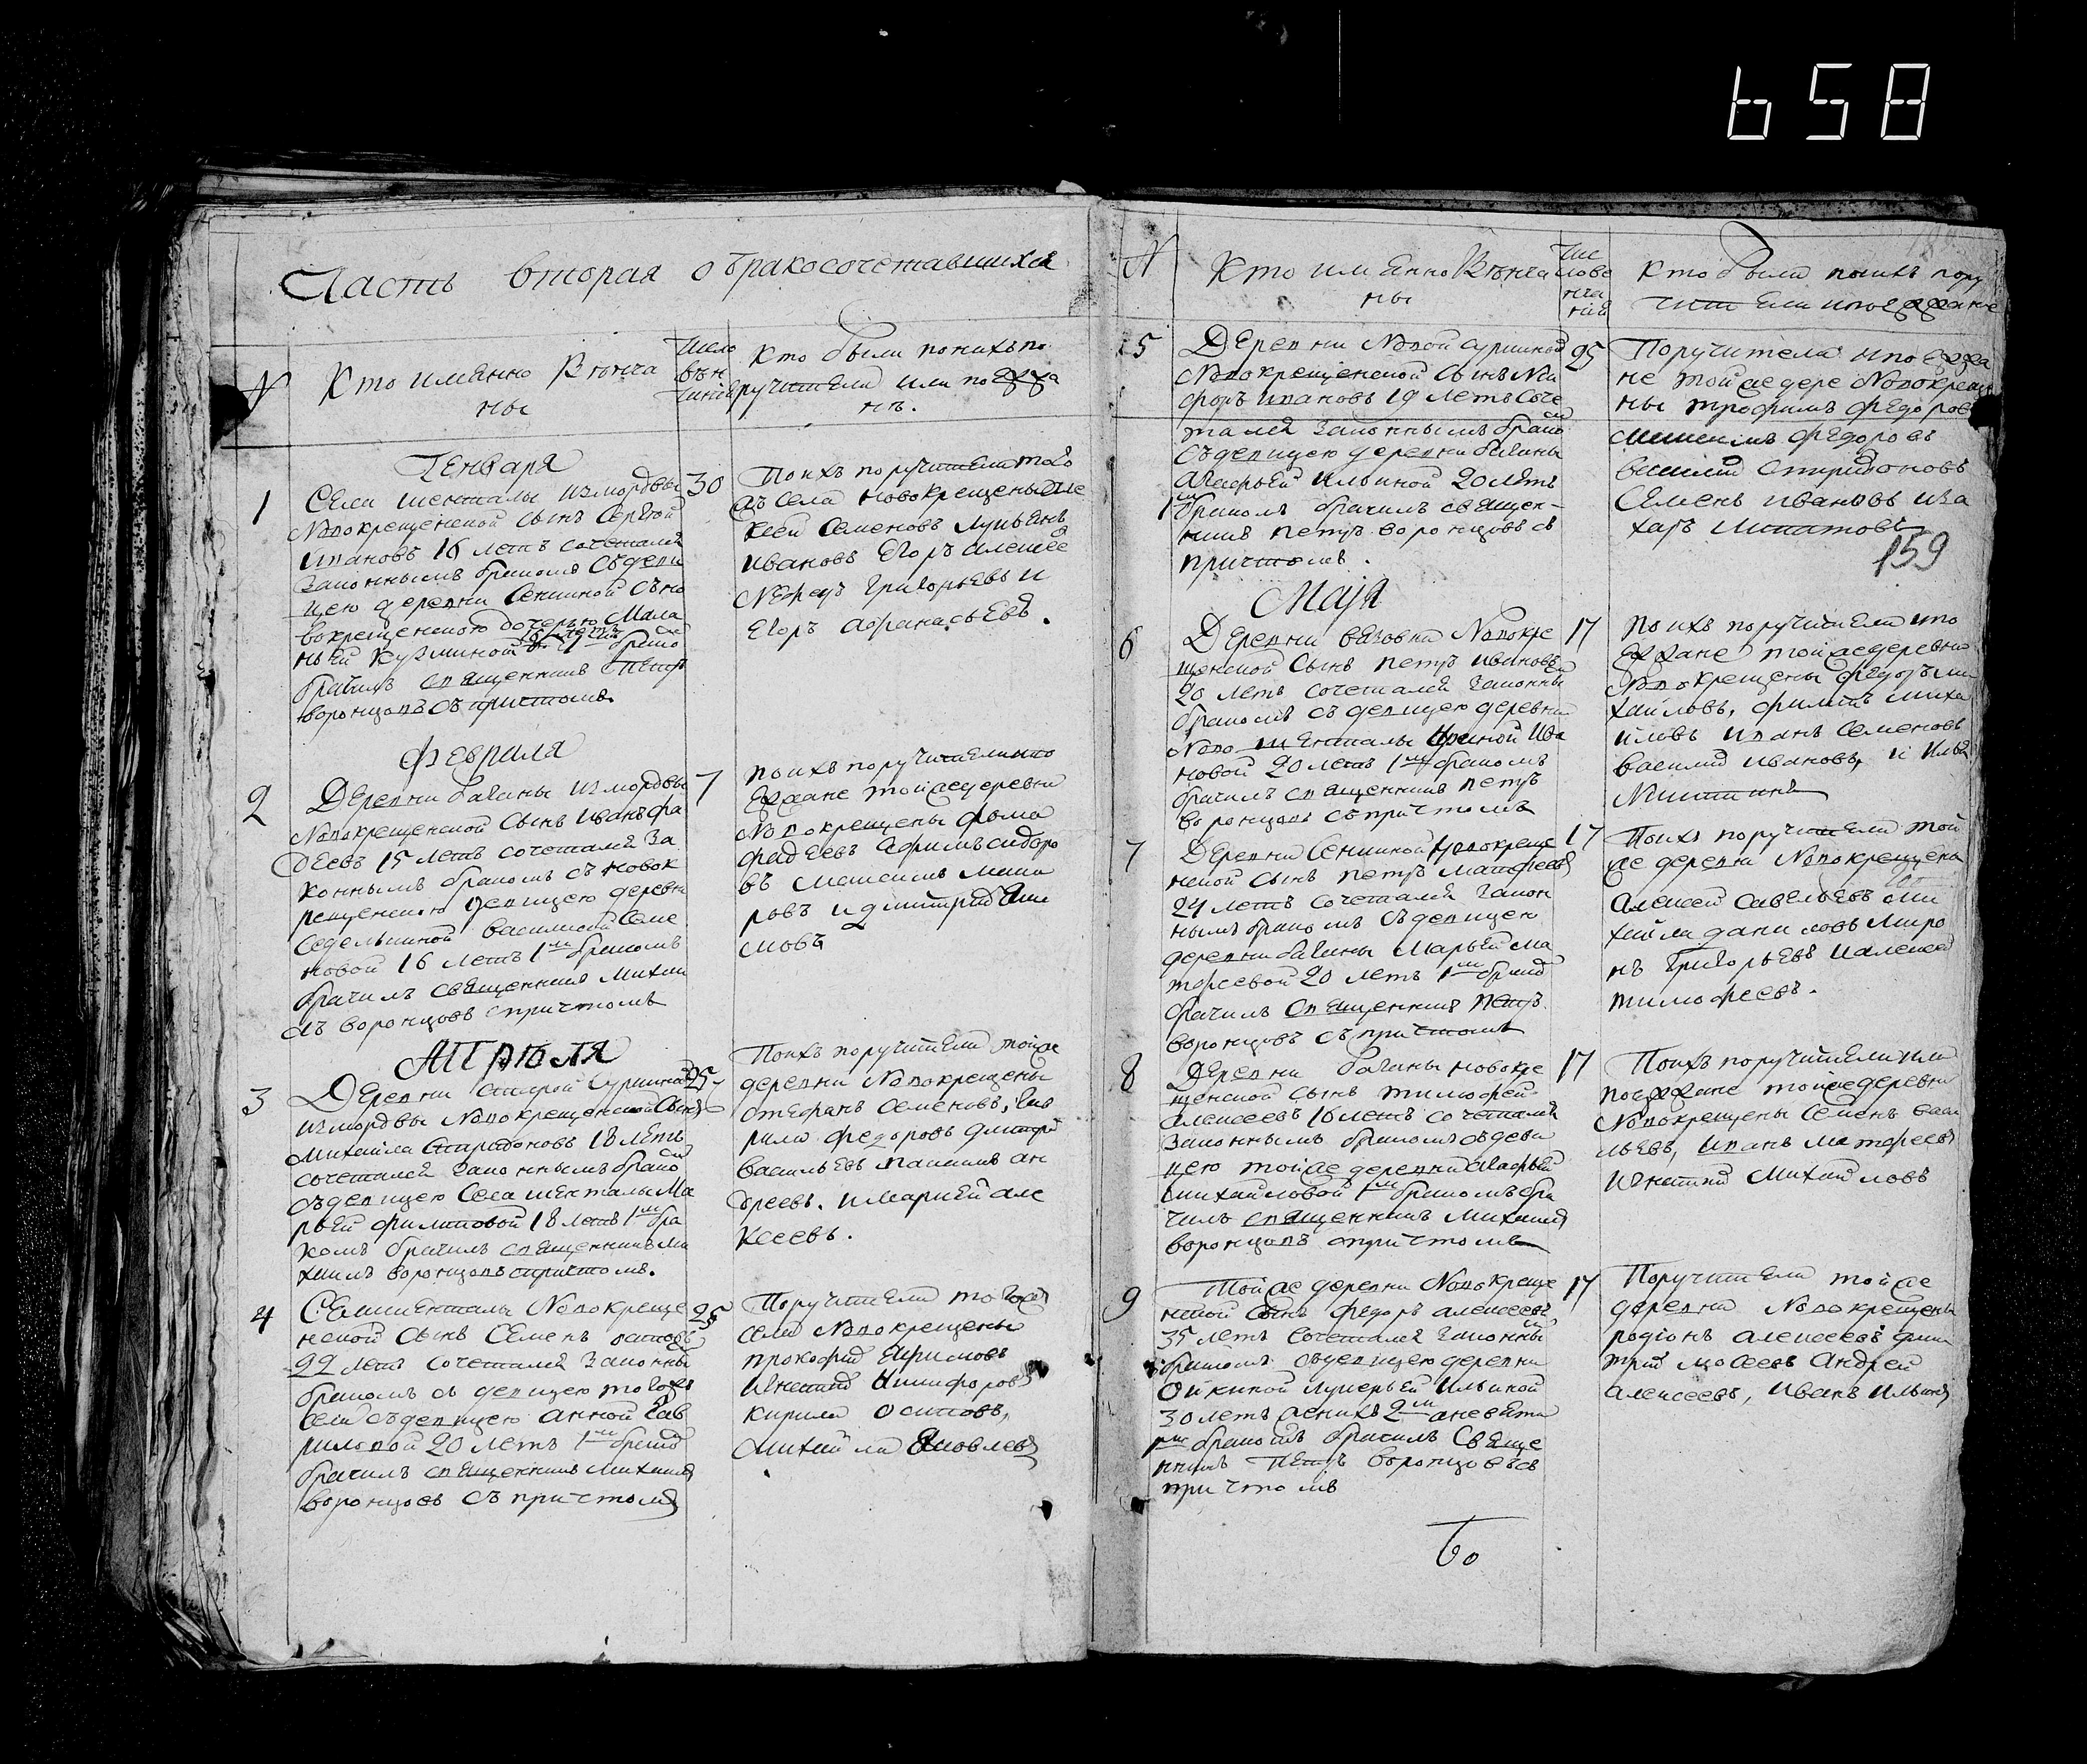 658
Часть вторая о бракосочетавшихся
N
Кто имянно венча
ны
Число
вен
чания
Кто были по нихъ по
ручители или поезжа
не.
Генваря
1
Села Шенталы из мордвы
новокрещенской сынъ Сергей
Ивановъ 16 летъ сочетался
законнымъ бракомъ съ деви
цею деревни Сенкиной с но
вокрещенскою дочерью Мала
ньей Кузминой 1мъ брако
16 летъ
брачилъ священникъ Петръ
Воронцовъ съ причтомъ
30
По ихъ поручители того
жъ села новокрещены Але
ксей Семеновъ Лукьянъ
Ивановъ Егоръ Алексее
Нефедъ Григорьевъ и
Егоръ Афанасьевъ.
Февраля
2
Деревни Багины из мордвы
новокрещенской сынъ Иванъ Фа
деевъ 15 летъ сочетался за
коннымъ бракомъ съ новок
рещенскою девицею деревни
Седелькиной Василисой Семе
новой 16 летъ 1мъ бракомъ
брачилъ священникъ Михаи
лъ Воронцовъ с причтомъ
7
По ихъ поручители и по
езжане тойже деревни
новокрещены Фома
Фадеевъ Ефимъ Сидоро
въ Максимъ Мака
ровъ и Дмитрий Яки
мовъ
Апреля
3
Деревни Старой Суркиной
из мордвы новокрещенской сынъ
Михайла Спиридоновъ 18 летъ
сочетался законнымъ брако
съ девицею села Шенталы Ма
рьей Филиповой 18 летъ 1мъ бра
комъ брачилъ священникъ Ми
хаилъ Воронцовъ с причтомъ.
25
По ихъ поручители тойже
деревни новокрещены
Стефанъ Семеновъ, Гав
рила Федоровъ Дмитрей
Васильевъ Максимъ Ан
дреевъ. и Маркей Але
ксеевъ.
4
Села Шенталы новокреще
нской сынъ Семенъ Осиповъ
22 летъ сочетался законны
бракомъ съ девицею тогожъ
села съ девицею Анной Гав
риловой 20 летъ 1мъ брако
брачилъ священникъ Михаилъ
Воронцовъ съ причтомъ
25
Поручители тогожъ
села новокрещены
Прокофий Ефимовъ
Игнатий Никифоровъ
Кирила Осиповъ,
Михайла Яковлевъ
N
Кто имянно венча
ны
Чис
ло ве
нча
ния
Кто были по ихъ пору
чители и поезжане
5
Деревни Новой Суркиной
новокрещенской сынъ Ники
форъ Ивановъ 19 летъ соче
тался законнымъ брако
съ девицею деревни Багины
Агафьей Ильиной 20 летъ
1мъ бракомъ брачилъ священ-
никъ Петръ Воронцовъ съ
причтомъ.
25
Поручители и поезжа
не тойже дере новокреще
ны Трофимъ Федоров
Максимъ Федоровъ
Василий Спиридоновъ
Семенъ Ивановъ и За
харъ Ипатовъ
159
Маjя
6
Деревни Вязовки новокре
щенской сынъ Петръ Ивановъ
20 летъ сочетался законны
бракомъ съ девицею деревни
Ново Шенталы Ириной Ива
новой 20 летъ 1мъ бракомъ
брачилъ священникъ Петръ
Воронцовъ съ причтомъ
17
По ихъ поручители и по
езжане тойже деревни
новокрещены Федоръ Ми
хайловъ, Филипъ Миха
йловъ Иванъ Семеновъ
Василий Ивановъ, и Илья
Никитинъ
7
Деревни Сенкиной новокреще
нской сынъ Петръ Матфеевъ
24 летъ сочетался закон
нымъ бракомъ съ девицею
деревни Багины Марьей Ма
тфеевой 20 летъ 1мъ брако
брачилъ священникъ Петръ
Воронцовъ съ причтомъ
17
По ихъ поручители той
же деревни новокрещены
Алексей Савельевъ Ми
хайла Даниловъ Миро
нъ Григорьевъ и Алексей
Тимофеевъ.
8
Деревни Багины новокре
щенской сынъ Тимофей
Алексеевъ 16 летъ сочетался
законнымъ бракомъ съ деви
цею тойже деревни Агафьей
Михайловой 1мъ бракомъ бра
чилъ священникъ Михаилъ
Воронцовъ с причтомъ
17
По ихъ поручители или
поезжане тойже деревни
новокрещены Семенъ Васи
льевъ, Иванъ Матфеевъ
Игнатий Михайловъ
9
Тойже деревни новокреще
нской сынъ Федоръ Алексеевъ
35 летъ сочетался законны
бракомъ съ девицею деревни
Ойкиной Лукерьей Ильиной
30 летъ женихъ 2мъ а невеста
1мъ бракомъ брачилъ свяще
нникъ Петръ Воронцовъ съ
причтомъ
17
Поручители тойже
деревни новокрещены
Родионъ Алексеевъ Дми
трий Мосеевъ Андрей
Алексеевъ, Иванъ Ильинъ